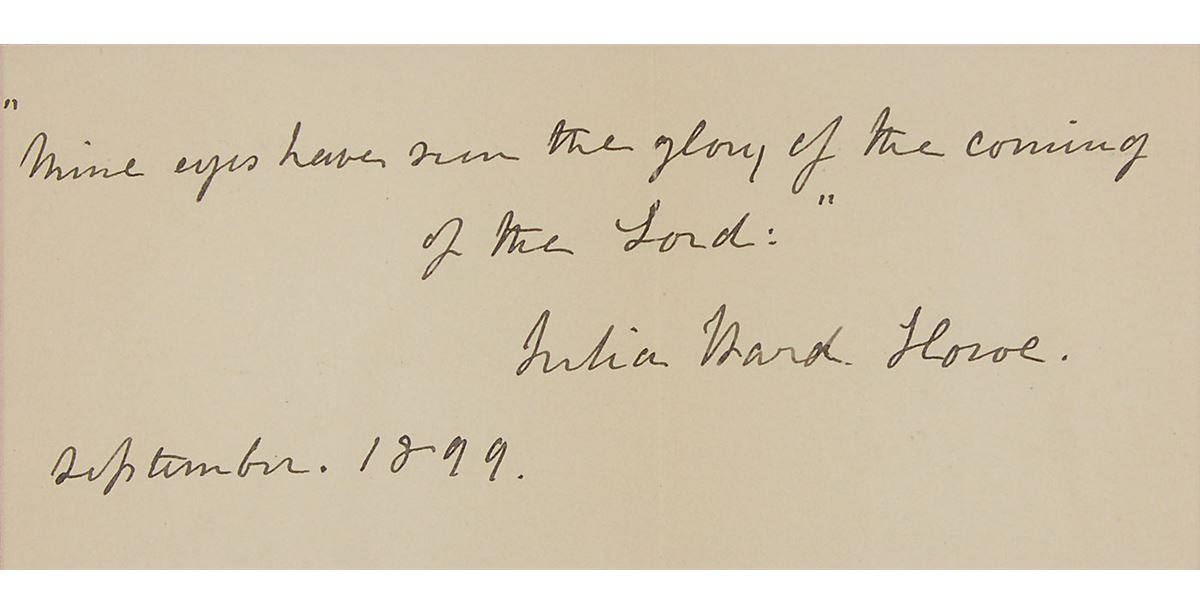 "Mine eyes have seen the glory of the coming
of the Lord:"
Julia Ward Howe.
September. 1899.